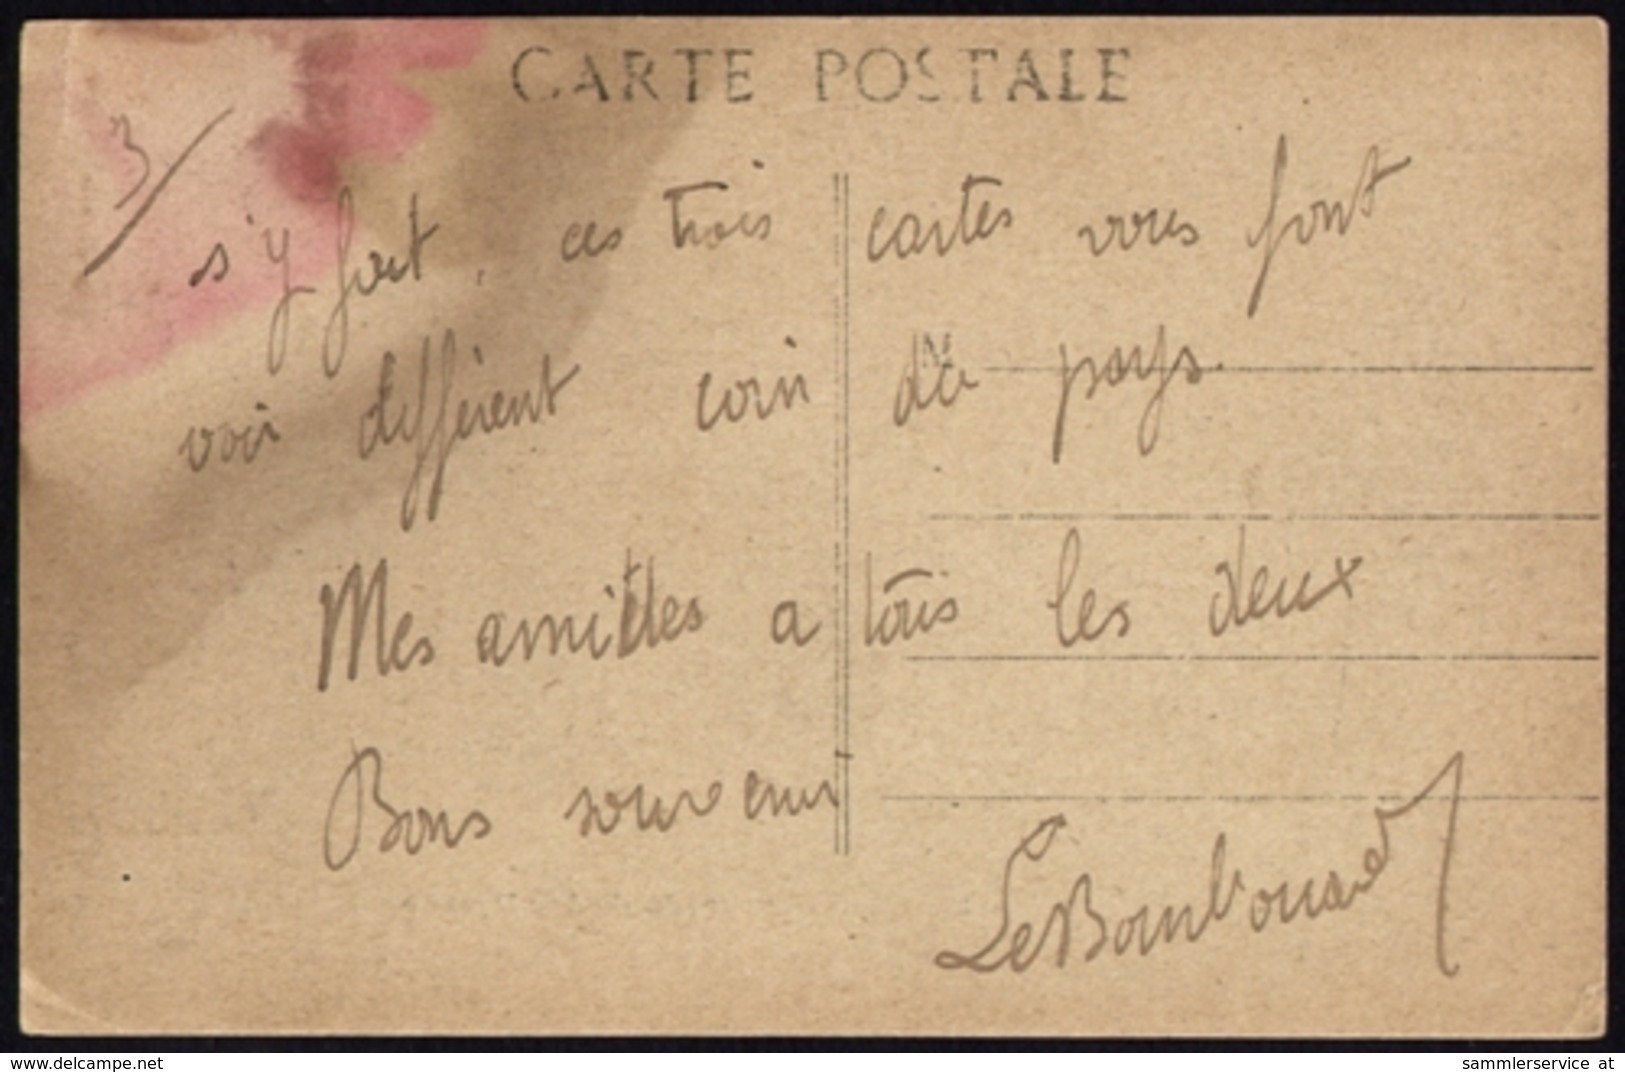 CARTE POSTALE
3
s'y fait, ces trois cartes vous font
voir différent coin du pays.
M
Mes amitiés a tous les deux
Bons souvenir
delcampe.net
sammlerservice at